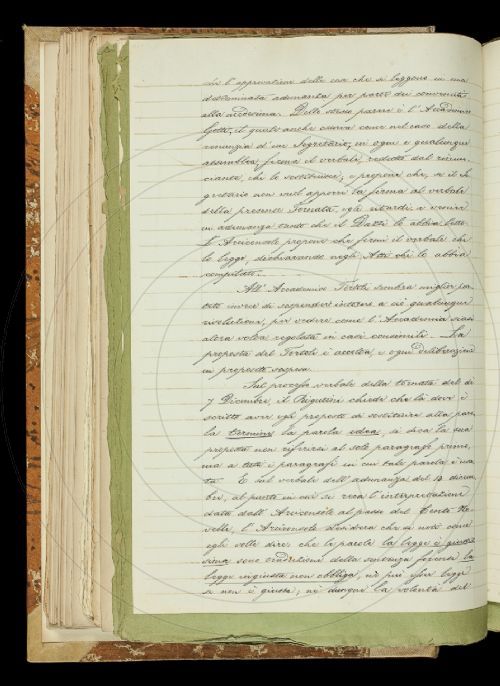 di l'approvazione delle cose che si leggono in una
determinata adunanza per parte dei convenuti
alla medesima. Dello stesso parere è l'Accademico
Gotti, il quale anche osserva come nel caso della
rinunzia d'un Segretario, in ogni e qualunque
assemblea, firma il verbale redatto dal rinun-
ciante, chi lo sostituisce; e propone che, se il Se-
gretario non vuol apporre la firma al verbale
della presente Tornata, egli ritardi a venire
in adunanza tanto che il Dazzi lo abbia letto.
L'Arciconsolo propone che firmi il verbale chi
lo legge, dichiarando negli Atti chi lo abbia
compilato.
All'Accademico Tortoli sembra miglior par-
tito invece di sospendere intorno a ciò qualunque
risoluzione, per vedere come l'Accademia siasi
altra volta regolata in casi consimili. La
proposta del Tortoli è accolta, e ogni deliberazione
in proposito sospesa.
Sul processo verbale della tornata del dì
7 Dicembre, il Rigutini chiede che là dove è
scritto aver egli proposto di sostituire alla paro-
la termine la parola idea, si dica la sua
proposta non riferirsi al solo paragrafo primo,
ma a tutti i paragrafi in cui tale parola è usa-
ta. E sul verbale dell'adunanza del 13 dicem-
bre, al punto in cui si reca l'interpretazione
data dall'Arciconsolo al passo del Cento No-
velle, l'Arciconsolo desidera che si noti come
egli volle dire, che le parole la legge è giustis-
sima sono condizioni della sentenza forense la
legge ingiusta non obbliga, nè può esser legge
se non è giusta; nè dunque la volontà del